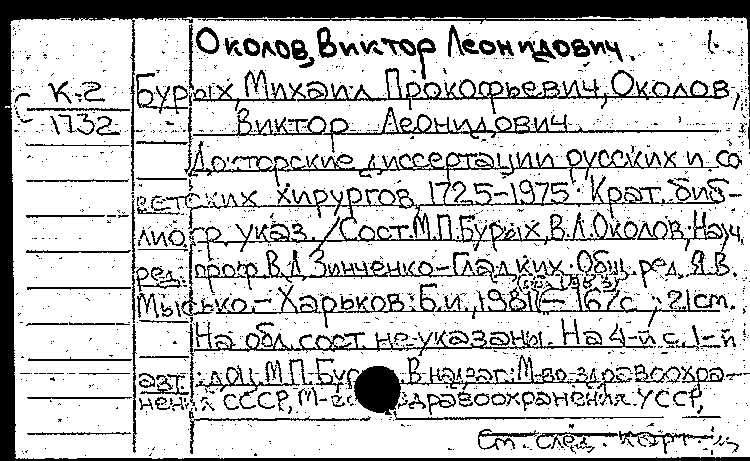 Околов, Виктор Леонидович. 1.
К-2 Бурых, Михаил Прокофьевич, Околов,
1732 Виктор Леонидович.
Докторские диссертации русских и со
ветских хирургов, 1725-1975. Крат. биб-
лиогр. указ. / Сост. М.П. Бурых, В.Л. Околов, Науч.
ред. проф. В.Д. Зинченко-Гладких. Общ. ред. Я.В.
Мысько. - Харьков: Б.и., 1981 - 167с; 21см.
На обл. сост. не указаны. На 4-й с. 1-й
авт.: доц. М.П. Бур В надзаг: М-во здравоохра-
нения СССР, М-во здравоохранения УССР,
См. след. карт-